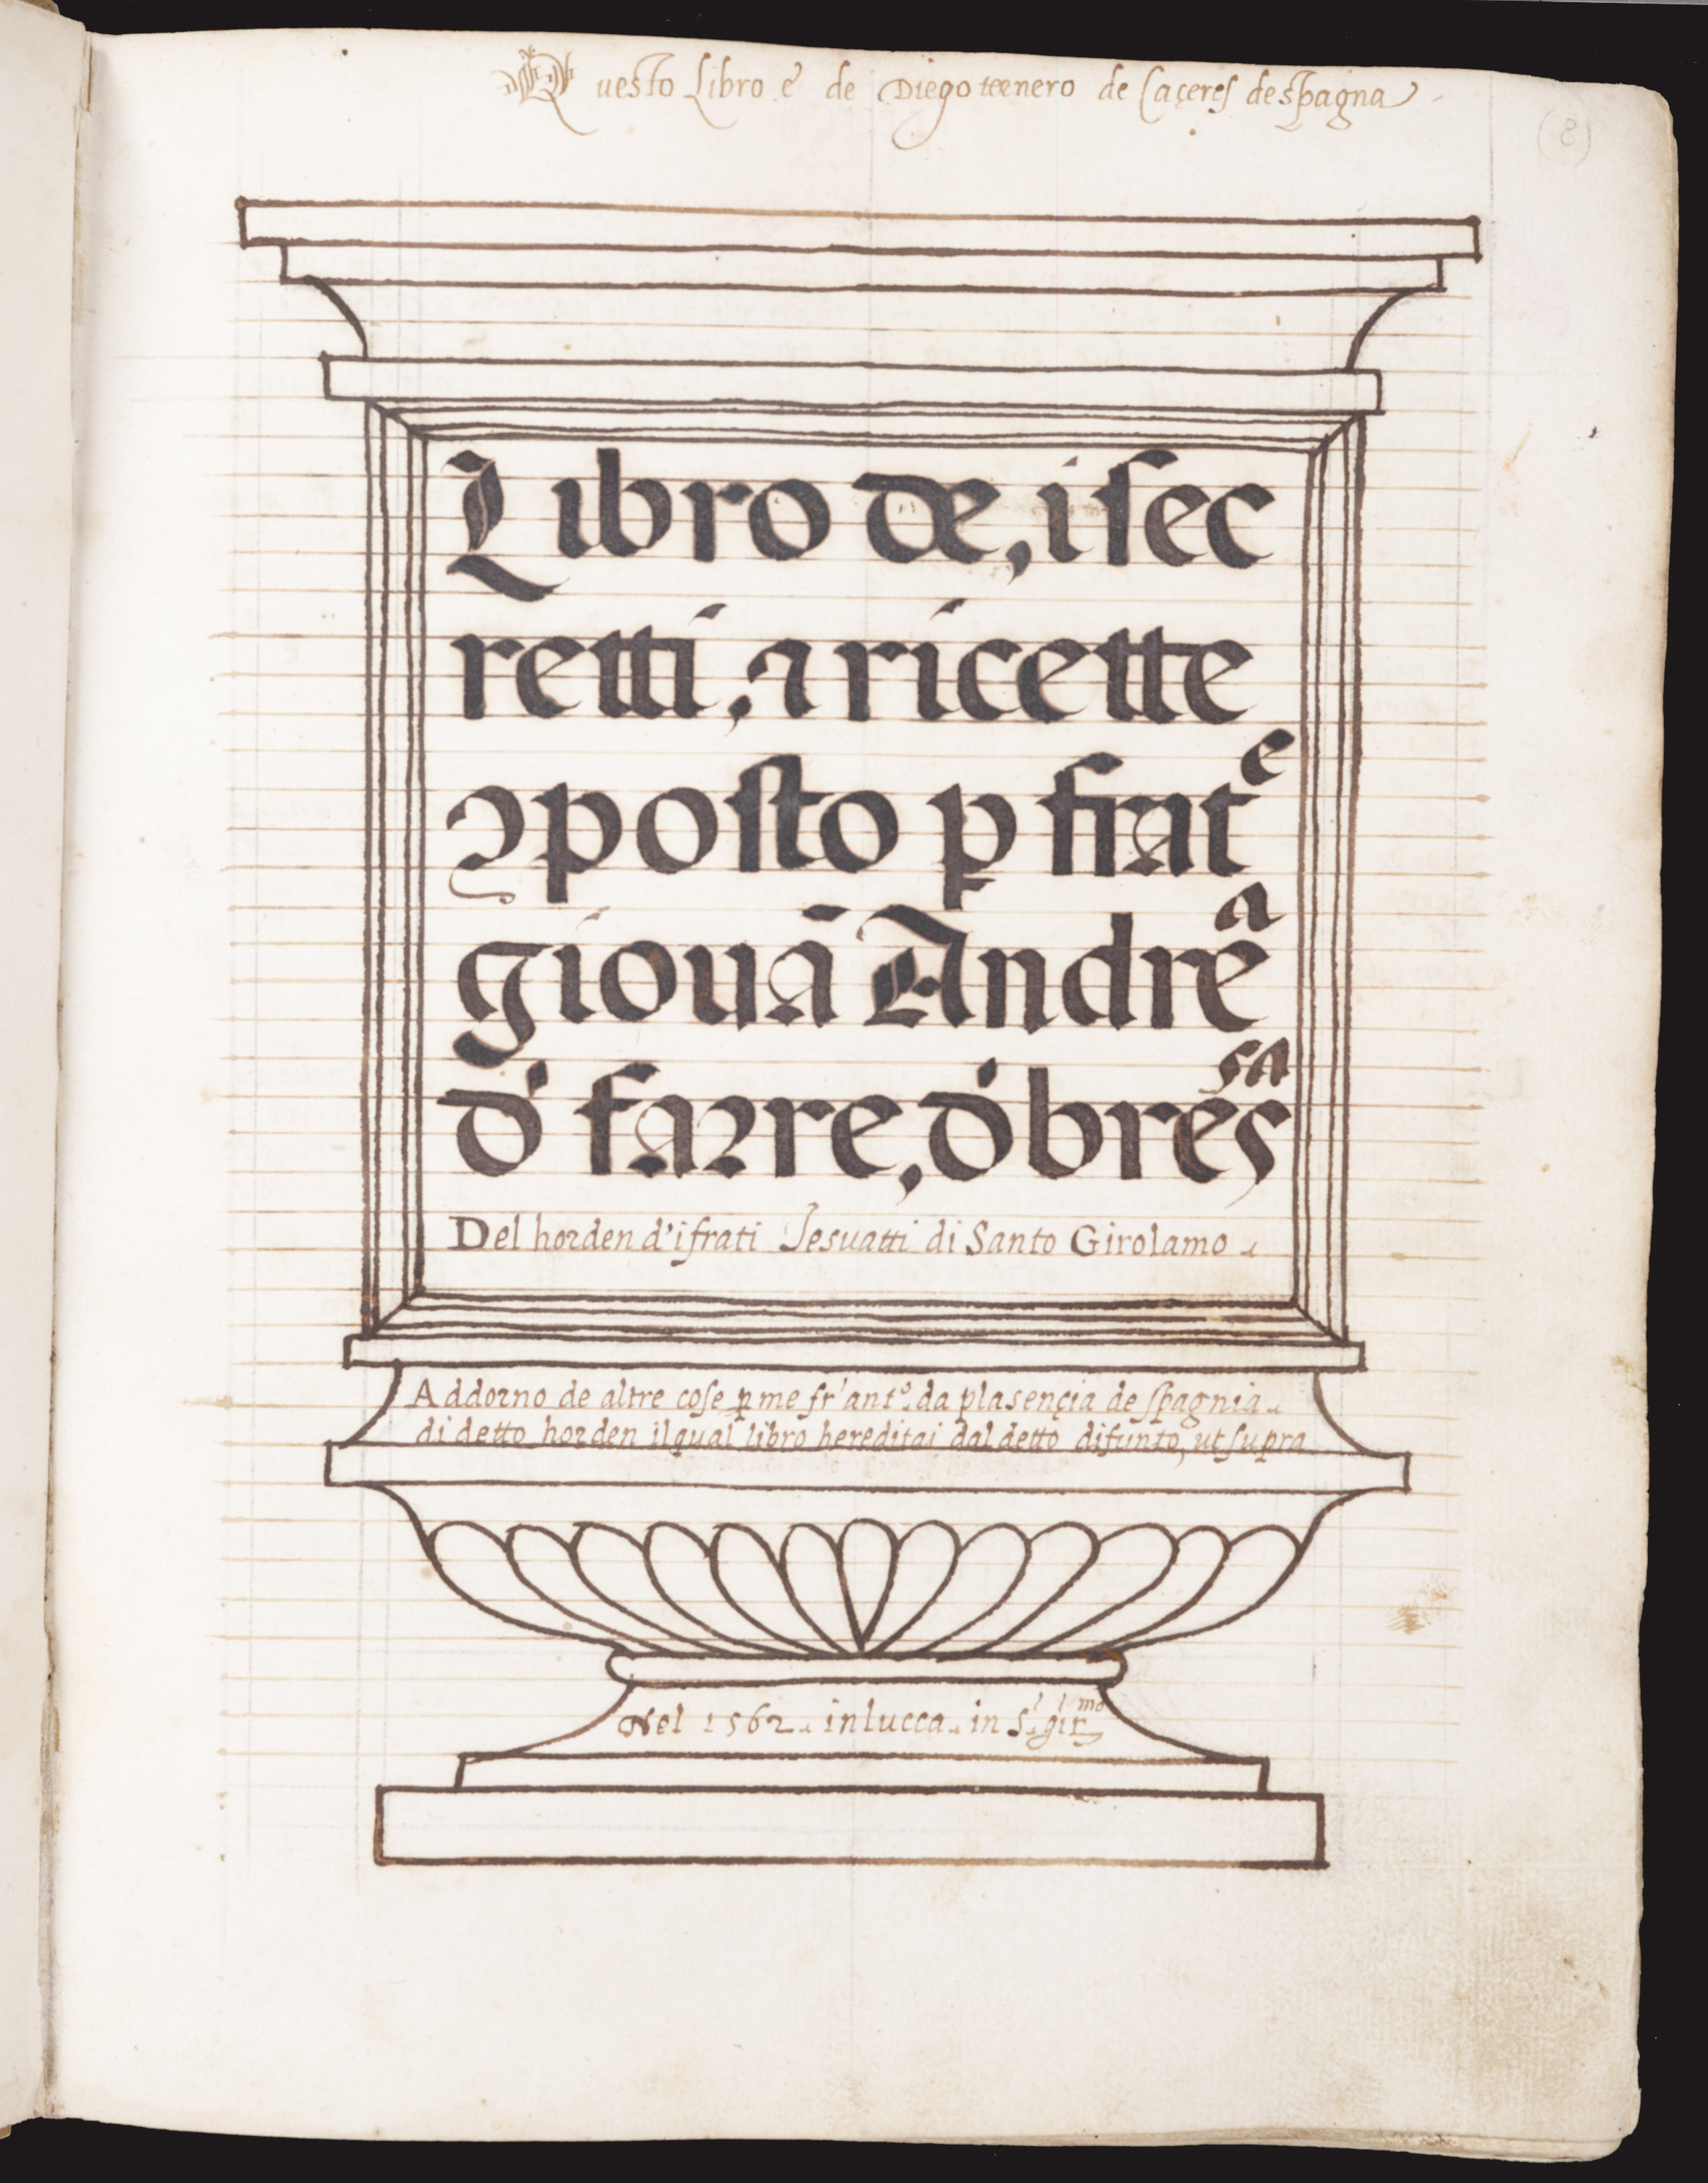 Questo Libro e' de Diego tenero de Caçeres de spagna
(8)
Libro de, i sec
retti, ⁊ ricette
ꝯposto ꝑ frat^e
giouā Andre^a
d' farre, d' bres^sa
Del horden d'i frati Jesuatti di Santo Girolamo.
Addorno de altre cose ꝑ me fr' ant.º da plasençia de spagnia.
di detto horden il qual libro hereditai dal detto difunto, ut supra
Nel 1562. in lucca. in S. gir^mo